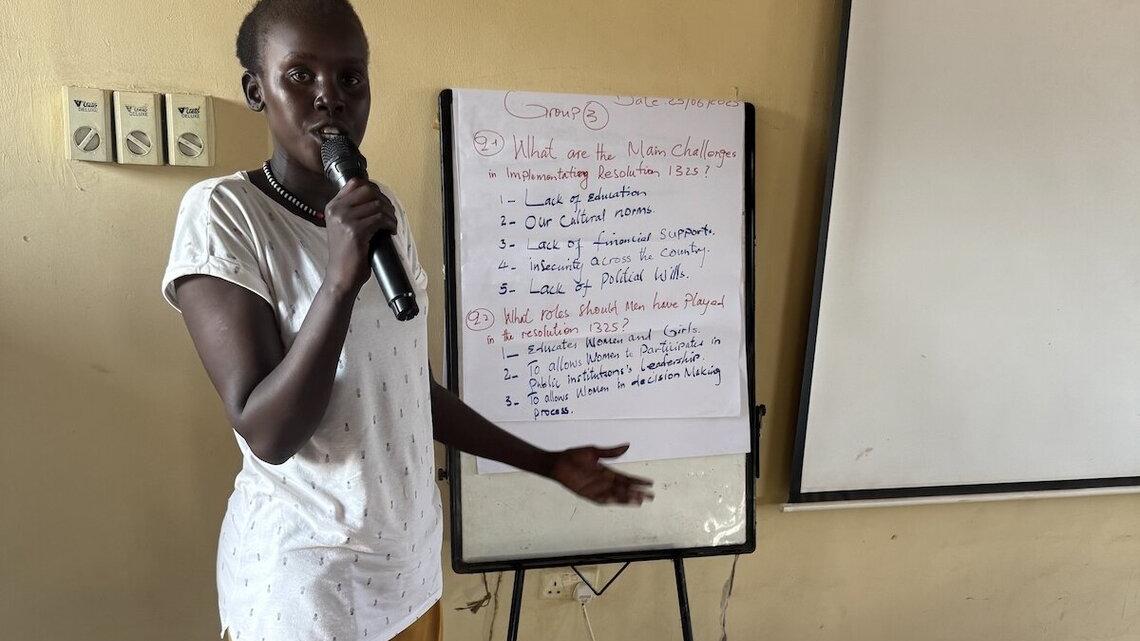 Group 3 Date 25/06/2025
Q1 What are the Main Challenges
in Implementating Resolution 1325?
1- Lack of Education
2- Our Cultural norms.
3- Lack of financial Supports.
4- insecurity across the Country.
5- Lack of Political Wills.
Q2 What roles should Men have Played
in the resolution 1325?
1- Educates Women and Girls.
2- To allows Women to Participates in
Public institutions's Leadership.
3- To allows Women in decision Making
process.
DELUXE
DELUXE
DELUXE